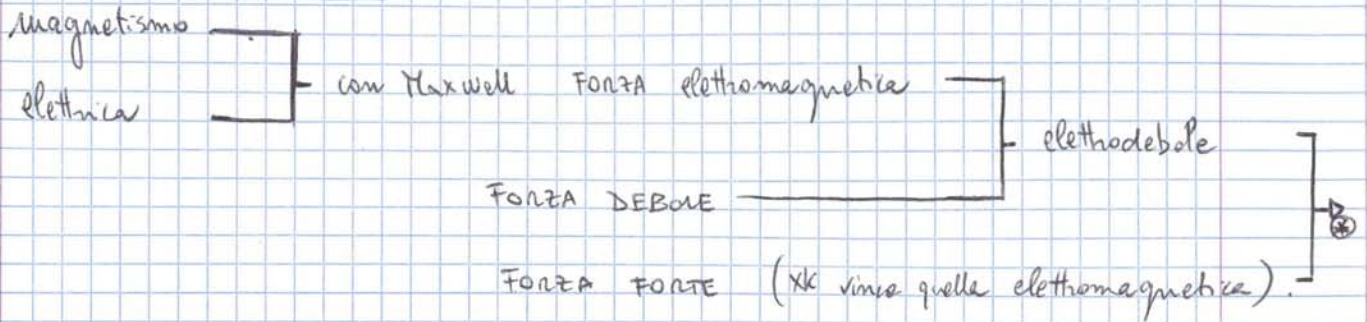 magnetismo
elettrica
con Maxwell FORZA elettromagnetica
elettrodebole
FORZA DEBOLE
FORZA FORTE (xk vince quella elettromagnetica).